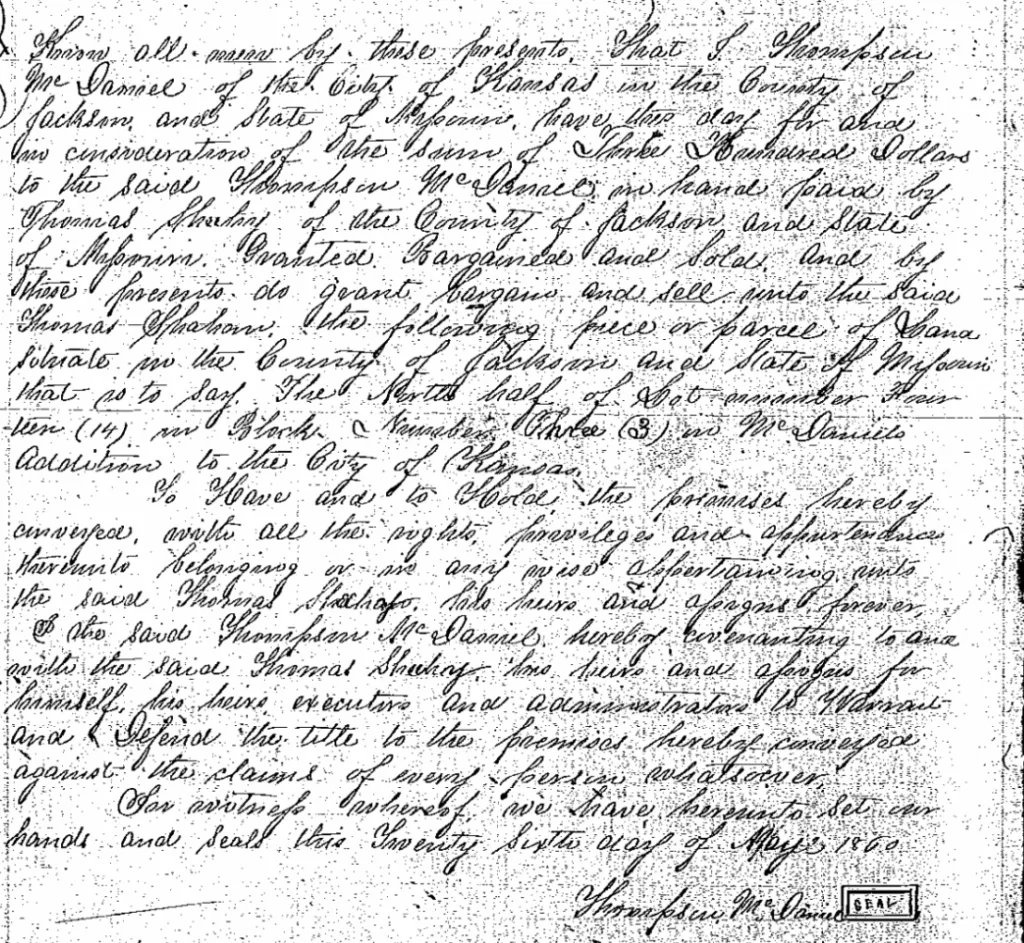 Know all men by these presents, That I Thompson
McDaniel of the City of Kansas in the County of
Jackson, and State of Missouri, have this day for and
in consideration of the sum of Three Hundred Dollars
to the said Thompson McDaniel in hand paid by
Thomas of the County of Jackson and State
of Missouri. Granted, Bargained and Sold, and by
these presents do grant, bargain and sell unto the said
Thomas the following piece or parcel of Land
situate in the County of Jackson and State of Missouri
that is to say, The North half of Lot number Four
teen (14) in Block Number Three (3) in McDaniels
Addition to the City of Kansas.
To Have and to Hold, the premises hereby
conveyed, with all the rights, privileges and appurtenances
thereunto belonging or in any wise appertaining unto
the said Thomas his heirs and assigns forever,
I the said Thompson McDaniel hereby covenanting to and
with the said Thomas his heirs and assigns for
himself, his heirs, executors and administrators to Warrant
and Defend the title to the premises hereby conveyed
against the claims of every person whatsoever,
In witness whereof, we have hereunto set our
hands and seals this Twenty Sixth day of May 1860
Thompson McDaniel SEAL